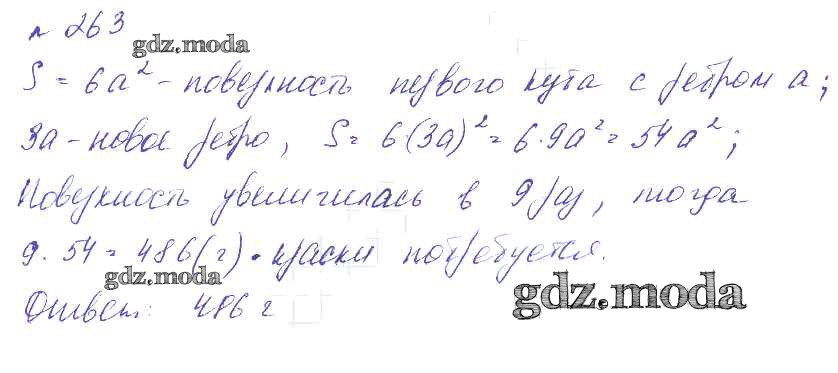 № 263
gdz.moda
S = 6a² - поверхность первого куба с ребром a;
3a - новое ребро, S = 6(3a)² = 6·9a² = 54a²;
Поверхность увеличилась в 9 раз, тогда
9·54 = 486(г) · краски потребуется.
gdz.moda
gdz.moda
Ответ: 486 г